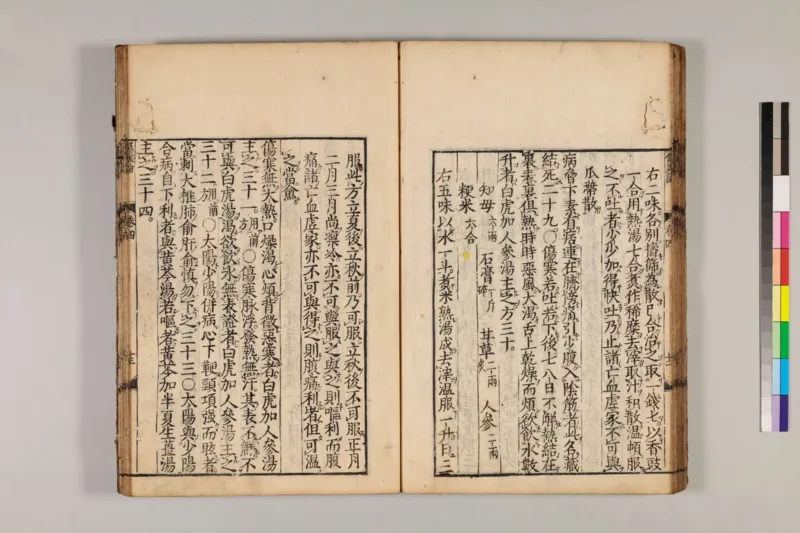 右二味各別擣篩為散已合治之取一錢匕以香豉
一合用熱湯七合煮作稀糜去滓取汁和散温頓服
之不吐者少少加得快吐乃止諸亡血虛家不可與
瓜蔕散
病脇下素有痞連在臍傍痛引少腹入陰筋者此名藏
結死二十九○傷寒若吐若下後七八日不解熱結在
裏表裏俱熱時時惡風大渴舌上乾燥而煩欲飲水數
升者白虎加人參湯主之方三十
知母六兩 石膏一斤碎 甘草二兩炙 人參二兩
粳米六合
右五味以水一斗煮米熟湯成去滓温服一升日三
服此方立夏後立秋前乃可服立秋後不可服正月
二月三月尚凛冷亦不可與服之與之則嘔利而腹
痛諸亡血虛家亦不可與得之則腹痛利者但可温
之當愈
傷寒無大熱口燥渴心煩背微惡寒者白虎加人參湯
主之三十一用前方○傷寒脉浮發熱無汗其表不解不
可與白虎湯渴欲飲水無表證者白虎加人參湯主之
三十二用前方○太陽少陽併病心下鞕頸項强而眩者
當刺大椎肺俞肝俞慎勿下之三十三○太陽與少陽
合病自下利者與黄芩湯若嘔者黄芩加半夏生薑湯
主之三十四